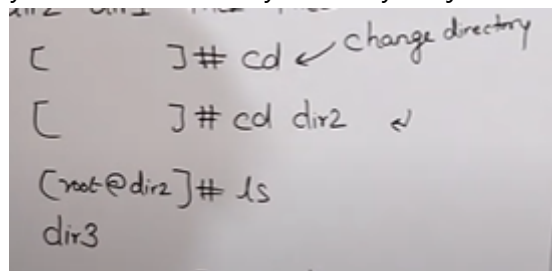 [ ]# cd ↙ change directory
[ ]# cd dir2 ↵
[root@dir2]# ls
dir3